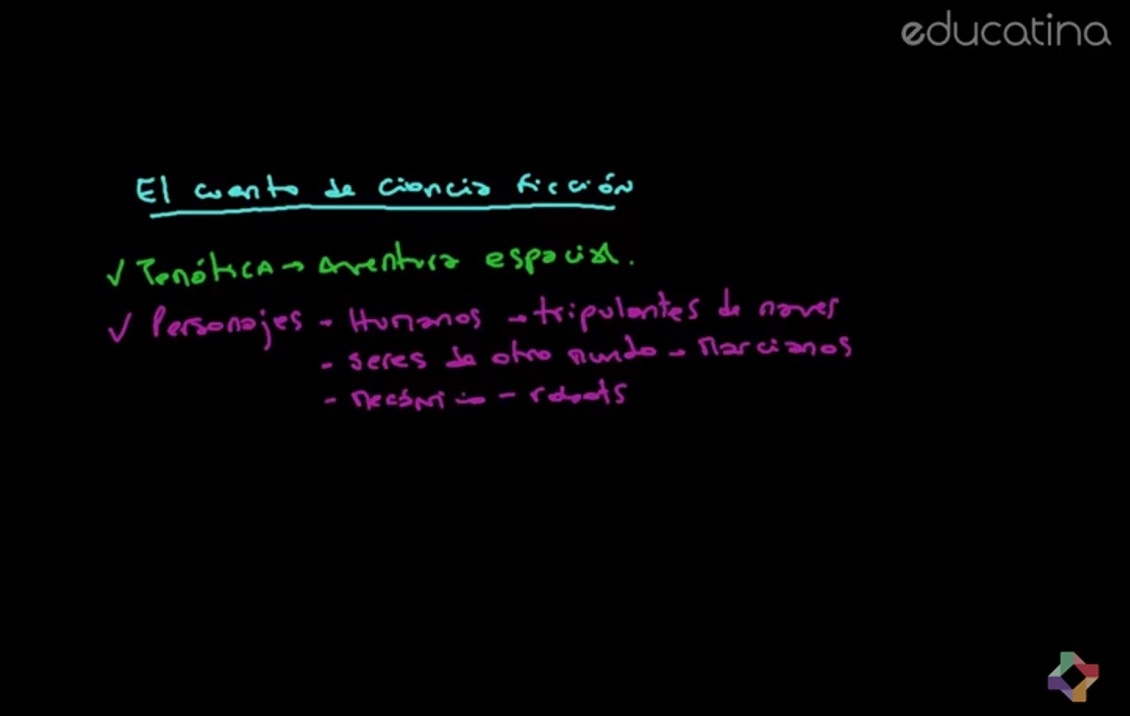 educatina
El cuento de ciencia ficción
✓ Temática → Aventura espacial.
✓ Personajes - Humanos → tripulantes de naves
- seres de otro mundo → Marcianos
- mecánico - robots